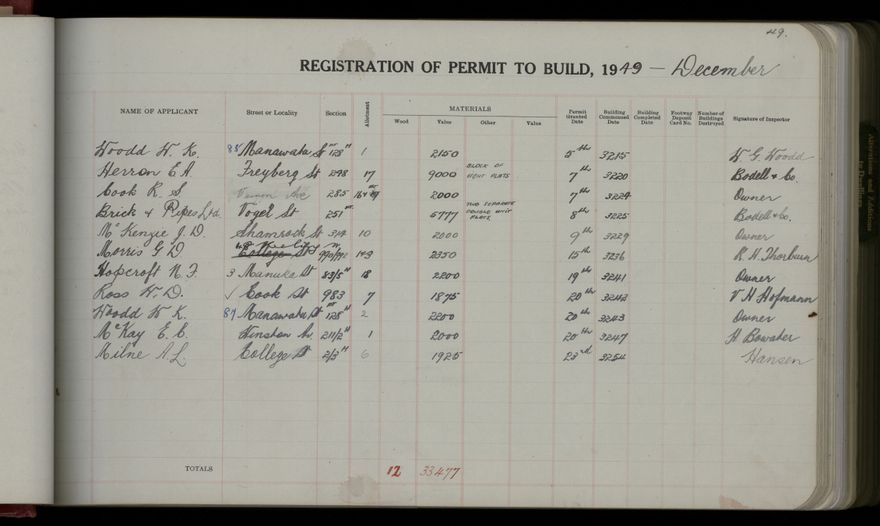 49.
REGISTRATION OF PERMIT TO BUILD, 1949 — December
NAME OF APPLICANT Street or Locality Section Allotment MATERIALS Permit Granted Date Building Commenced Date Building Completed Date Footway Deposit Card No. Number of Buildings Destroyed Signature of Inspector
Wood Value Other Value
Woodd W. K. 85 Manawatu St 128 1 2150 5th 3215 W G. Woodd
Herron E A. Freyberg St 298 17 9000 BLOCK OF EIGHT FLATS 7th 3220 Bodell & Co.
Cook R. S. Vernon Ave 285 2000 7th 3224 Owner
Brick & Pipes Ltd. Vogel St 251 5777 TWO SEPARATE DOUBLE UNIT 8th 3225 Bodell & Co.
McKenzie J. D. Shamrock St 314 10 2000 9th 3229 Owner
Morris G D College St 2350 15th 3236 R. H. Thorburn
Hopcroft N. F. 3 Manuka St 83/5 18 2200 19th 3241 Owner
Ross W. D. ✓ Cook St 983 7 1875 20th 3242 V H Hofmann
Woodd W K. 87 Manawatu St 128 2 2200 20th 3243 Owner
McKay E. C. Winston Av. 211/2 1 2000 20th 3247 H Bowater
Milne A L. College St 2/3 6 1925 23rd 3254 Hansen
TOTALS 12 33477
Alterations and Additions
to Dwellings